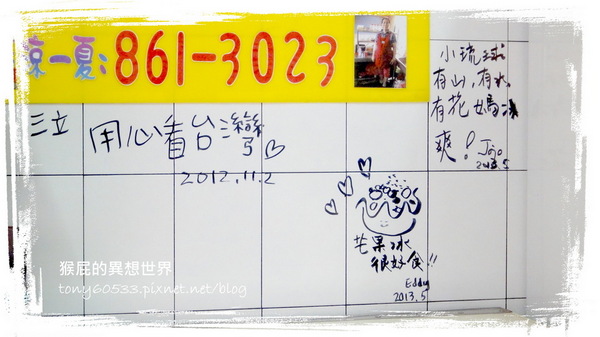 涼一夏:861-3023
小琉球
有山,有水,
有花媽冰
爽! Jojo
2013.5
三立 用心看台灣
2012.11.2
芒果冰
很好食!!
Eddy
2013.5
猴屁的異想世界
tony60533.pixnet.net/blog